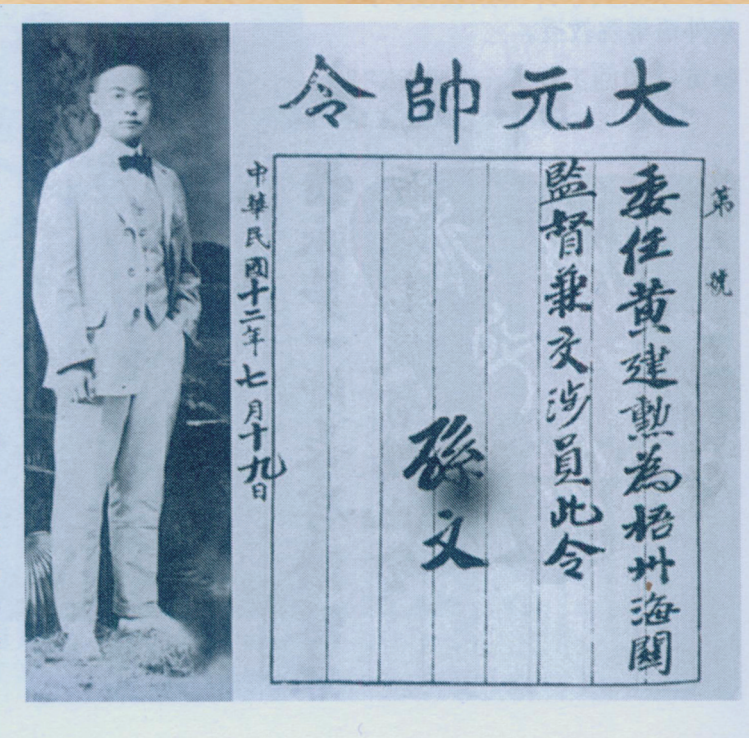 大元帥令
第 號
委任黃建勳為梧州海關
監督兼交涉員此令
孫文
中華民國十二年七月十九日